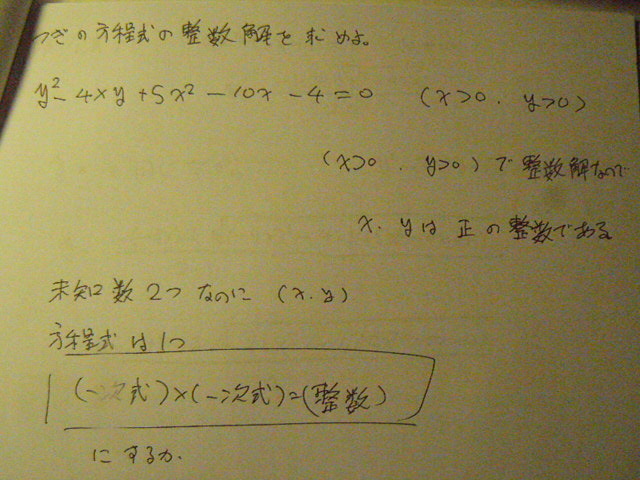 つぎの方程式の整数解を求めよ。
y²-4xy+5x²-10x-4=0 (x>0.y>0)
(x>0.y>0)で整数解なので
x.yは正の整数である
未知数2つなのに(x.y)
方程式は1つ
(一次式)×(一次式)=(整数)
にするか.